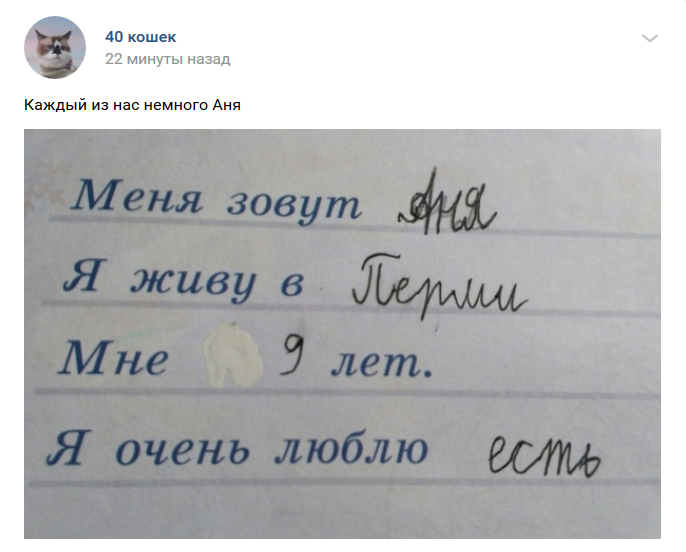 40 кошек
22 минуты назад
Каждый из нас немного Аня
Меня зовут Аня
Я живу в Перми
Мне 9 лет.
Я очень люблю есть